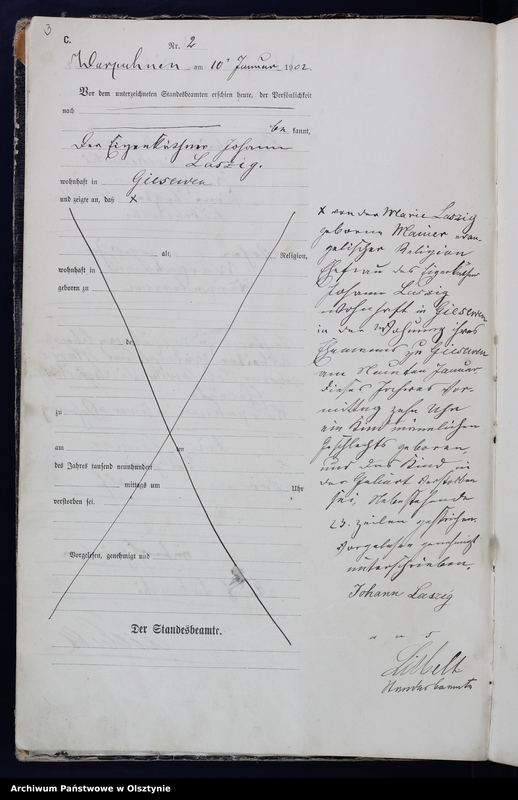 3
C.
Nr. 2
Warpuhnen am 10ten Januar 1902.
Vor dem unterzeichneten Standesbeamten erschien heute, der Persönlichkeit
nach
be kannt,
der Eigenkäthner Johann
Laszig.
wohnhaft in Giesewen
und zeigte an, daß x
alt, Religion,
wohnhaft in
geboren zu
de
zu
am
des Jahres tausend neunhundert
mittags um Uhr
verstorben sei.
Vorgelesen, genehmigt und
Der Standesbeamte.
x von der Marie Laszig
geborene evan-
gelischer Religion
Ehefrau des Eigenkäthner
Johann Laszig
wohnhaft in Giesewen
in der Wohnung ihres
Ehemannes zu Giesewen
am neunten Januar
dieses Jahres Vor-
mittag zehn Uhr
ein Kind männlichen
Geschlechts geboren
und das Kind in
der Geburt verstorben
sei. Nebenstehende
23. Zeilen gestrichen.
Vorgelesen genehmigt
unterschrieben.
Johann Laszig
Standesbeamte
Archiwum Państwowe w Olsztynie